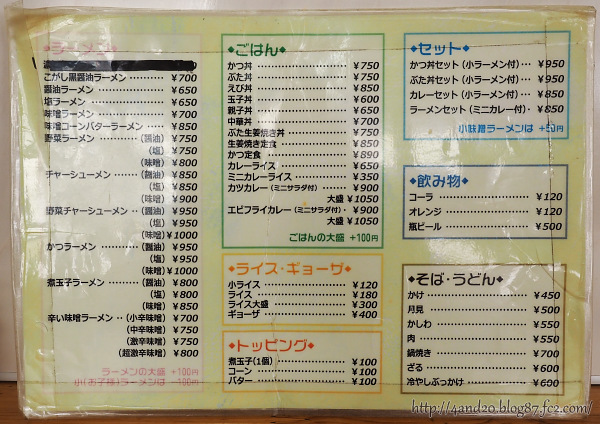 ◆ラーメン◆
こがし黒醤油ラーメン ¥700
醤油ラーメン ¥650
塩ラーメン ¥650
味噌ラーメン ¥700
味噌コーンバターラーメン ¥850
野菜ラーメン (醤油) ¥750
(塩) ¥750
(味噌) ¥800
チャーシューメン (醤油) ¥850
(塩) ¥850
(味噌) ¥900
野菜チャーシューメン (醤油) ¥950
(塩) ¥950
(味噌) ¥1000
かつラーメン (醤油) ¥950
(塩) ¥950
(味噌) ¥1000
煮玉子ラーメン (醤油) ¥800
(塩) ¥800
(味噌) ¥850
辛い味噌ラーメン (小辛味噌) ¥700
(中辛味噌) ¥750
(激辛味噌) ¥750
(超激辛味噌) ¥800
ラーメンの大盛 +100円
小(お子様)ラーメンは -100円
◆ごはん◆
かつ丼 ¥750
ぶた丼 ¥750
えび丼 ¥850
玉子丼 ¥600
親子丼 ¥650
中華丼 ¥700
ぶた生姜焼き丼 ¥750
生姜焼き定食 ¥850
かつ定食 ¥890
カレーライス ¥650
ミニカレーライス ¥350
カツカレー (ミニサラダ付) ¥900
大盛 ¥1050
エビフライカレー (ミニサラダ付) ¥900
大盛 ¥1050
ごはんの大盛 +100円
◆ライス・ギョーザ◆
小ライス ¥120
ライス ¥180
ライス大盛 ¥300
ギョーザ ¥400
◆トッピング◆
煮玉子(1個) ¥100
コーン ¥100
バター ¥100
◆セット◆
かつ丼セット (小ラーメン付) ¥950
ぶた丼セット (小ラーメン付) ¥950
カレーセット (小ラーメン付) ¥850
ラーメンセット (ミニカレー付) ¥850
小味噌ラーメンは +50円
◆飲み物◆
コーラ ¥120
オレンジ ¥120
瓶ビール ¥500
◆そば・うどん◆
かけ ¥450
月見 ¥500
かしわ ¥550
肉 ¥550
鍋焼き ¥700
ざる ¥600
冷やしぶっかけ ¥600
http://4and20.blog87.fc2.com/